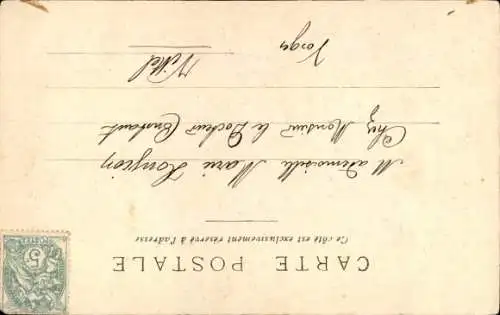 CARTE POSTALE
Ce côté est exclusivement réservé à l'adresse
Mademoiselle Marie
Chez Monsieur le Docteur Constant
Vittel
Vosges
5